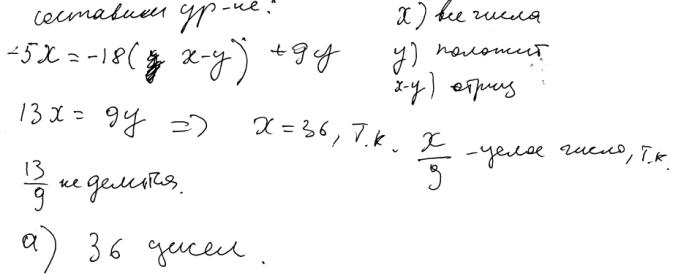 составим ур-ие:
x) все числа
-5x = -18(x-y) + 9y
y) положит
x-y) отриц
13x = 9y => x = 36, т.к. x/9 - целое число, т.к.
13/9 не делится.
а) 36 чисел.